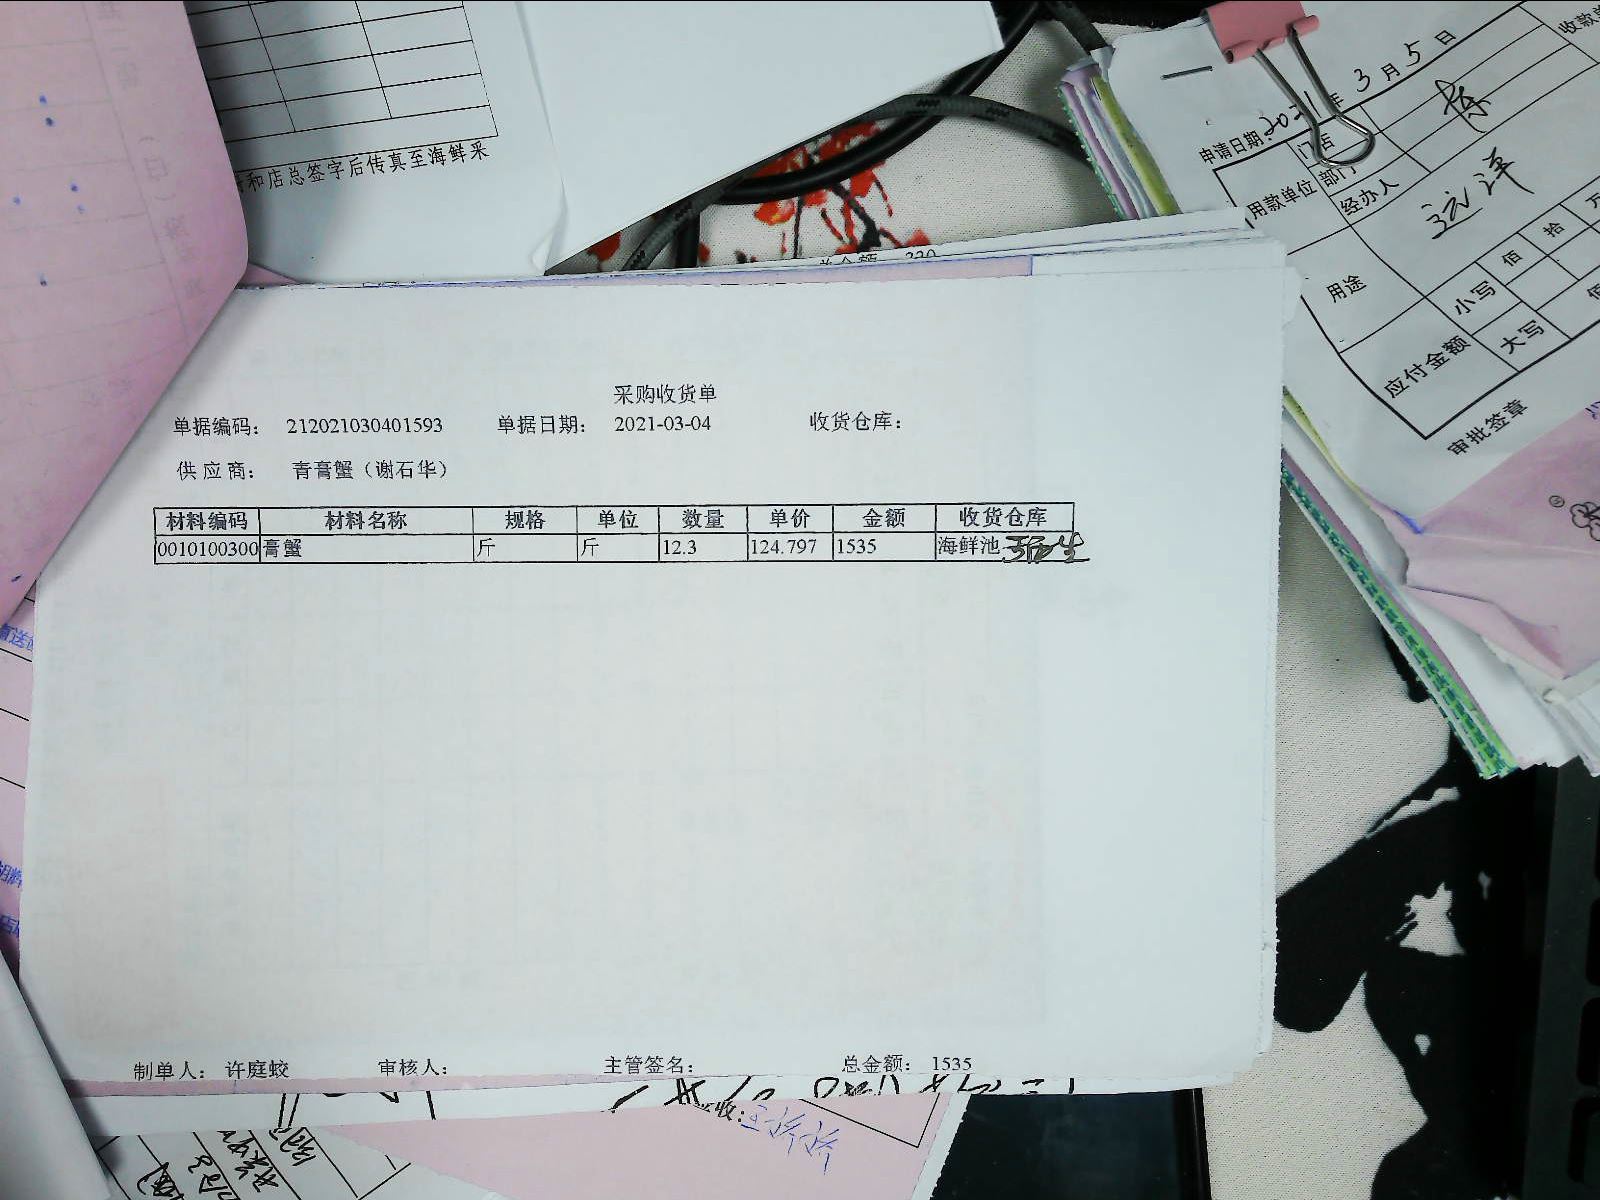 和店总签字后传真至海鲜采
申请日期:2021年3月5日
收款单
用款单位
门店
部门
经办人
远洋
用途
小写
佰
拾
万
应付金额
大写
审批签章
总金额 330
采购收货单
单据编码: 212021030401593 单据日期: 2021-03-04 收货仓库:
供应商: 青膏蟹（谢石华）
材料编码 材料名称 规格 单位 数量 单价 金额 收货仓库
0010100300 膏蟹 斤 斤 12.3 124.797 1535 海鲜池
制单人: 许庭蛟 审核人: 主管签名: 总金额: 1535
收: